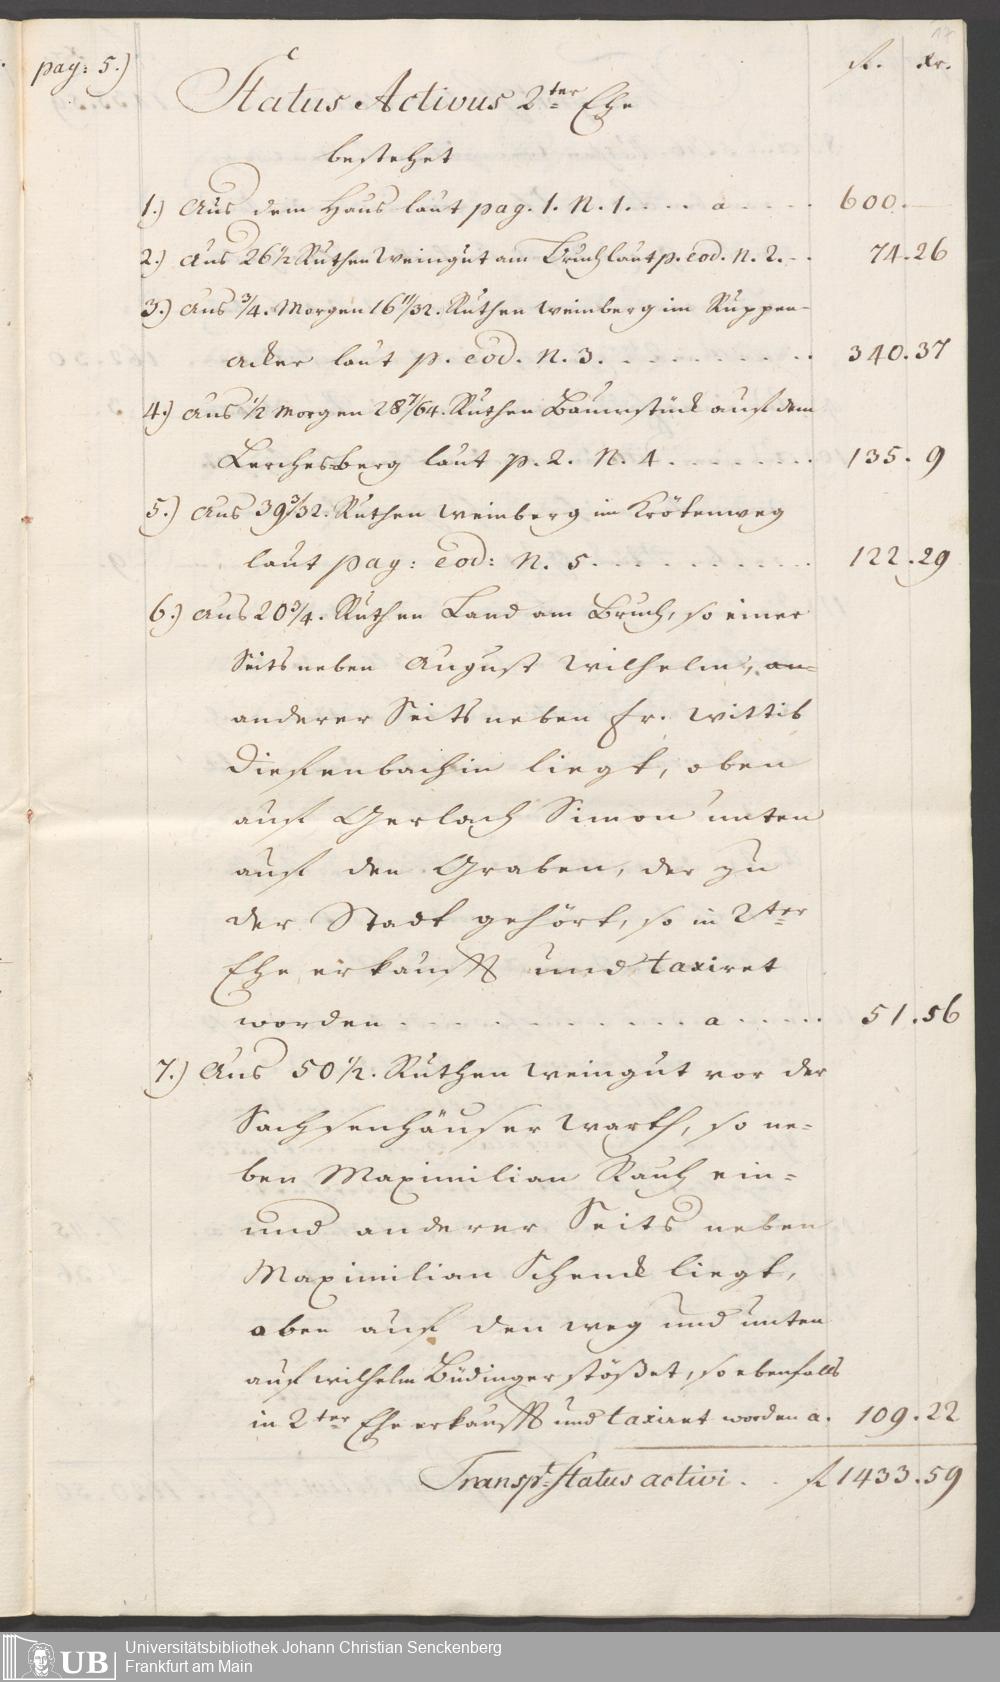 17
pag: 5.)
fl. Xr.
Status Activus 2ter Ehe
bestehet
1.) Aus dem Haus laut pag. 1. N. 1. . . . a . . . . 600. —
2.) Aus 26 1/2 Ruthen Weingut am Bruch laut p. eod. N. 2. . . 74. 26
3.) Aus 3/4. Morgen 16 11/32. Ruthen Weinberg im Ruppen-
acker laut p. eod. N. 3. . . . . . . . . 340. 37
4.) Aus 1/2 Morgen 28 7/64. Ruthen Baumstück auf dem
Lerchesberg laut p. 2. N. 4. . . . . . . . 135. 9
5.) Aus 39 3/32. Ruthen Weinberg im Krötenweg
laut pag: eod: N. 5. . . . . . . . . . . 122. 29
6.) Aus 20 3/4. Ruthen Land am Bruch, so einer
Seits neben August Wilhelm, an=
anderer Seits neben Fr. Wittib
Diefenbachin liegt, oben
auf Gerlach Simon unten
auf den Graben, der zu
der Stadt gehört, so in 2ter
Ehe erkaufft und taxiret
worden . . . . . . . . . . . a . . . . . 51. 56
7.) Aus 50 1/2. Ruthen Weingut vor der
Sachsenhäuser Warth, so ne=
ben Maximilian Rauch ein=
und anderer Seits neben
Maximilian Schenck liegt,
oben auf den Weg und unten
auf Wilhelm Büdinger stößet, so ebenfalls
in 2ter Ehe erkaufft und taxiret worden a. 109. 22
Transpt. Status activi . . fl 1433. 59
UB
Universitätsbibliothek Johann Christian Senckenberg
Frankfurt am Main